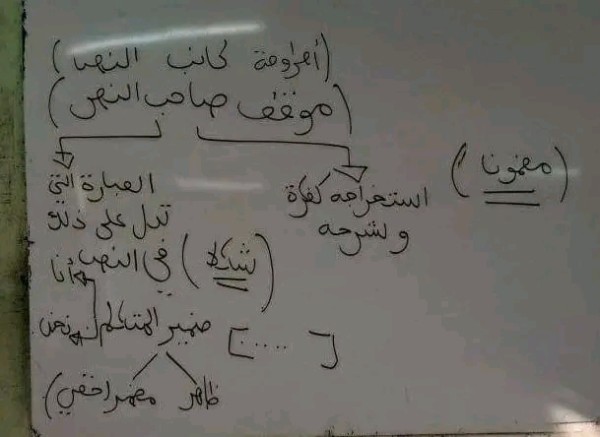 (أطروحة كاتب النص)
(موقف صاحب النص)
(مضمونا)
استخراجه كفكرة
وشرحه
العبارة التي
تدل على ذلك
في النص (شكلا)
أنا
ضمير المتكلم نحن
[.....]
ظاهر مضمر (خفي)